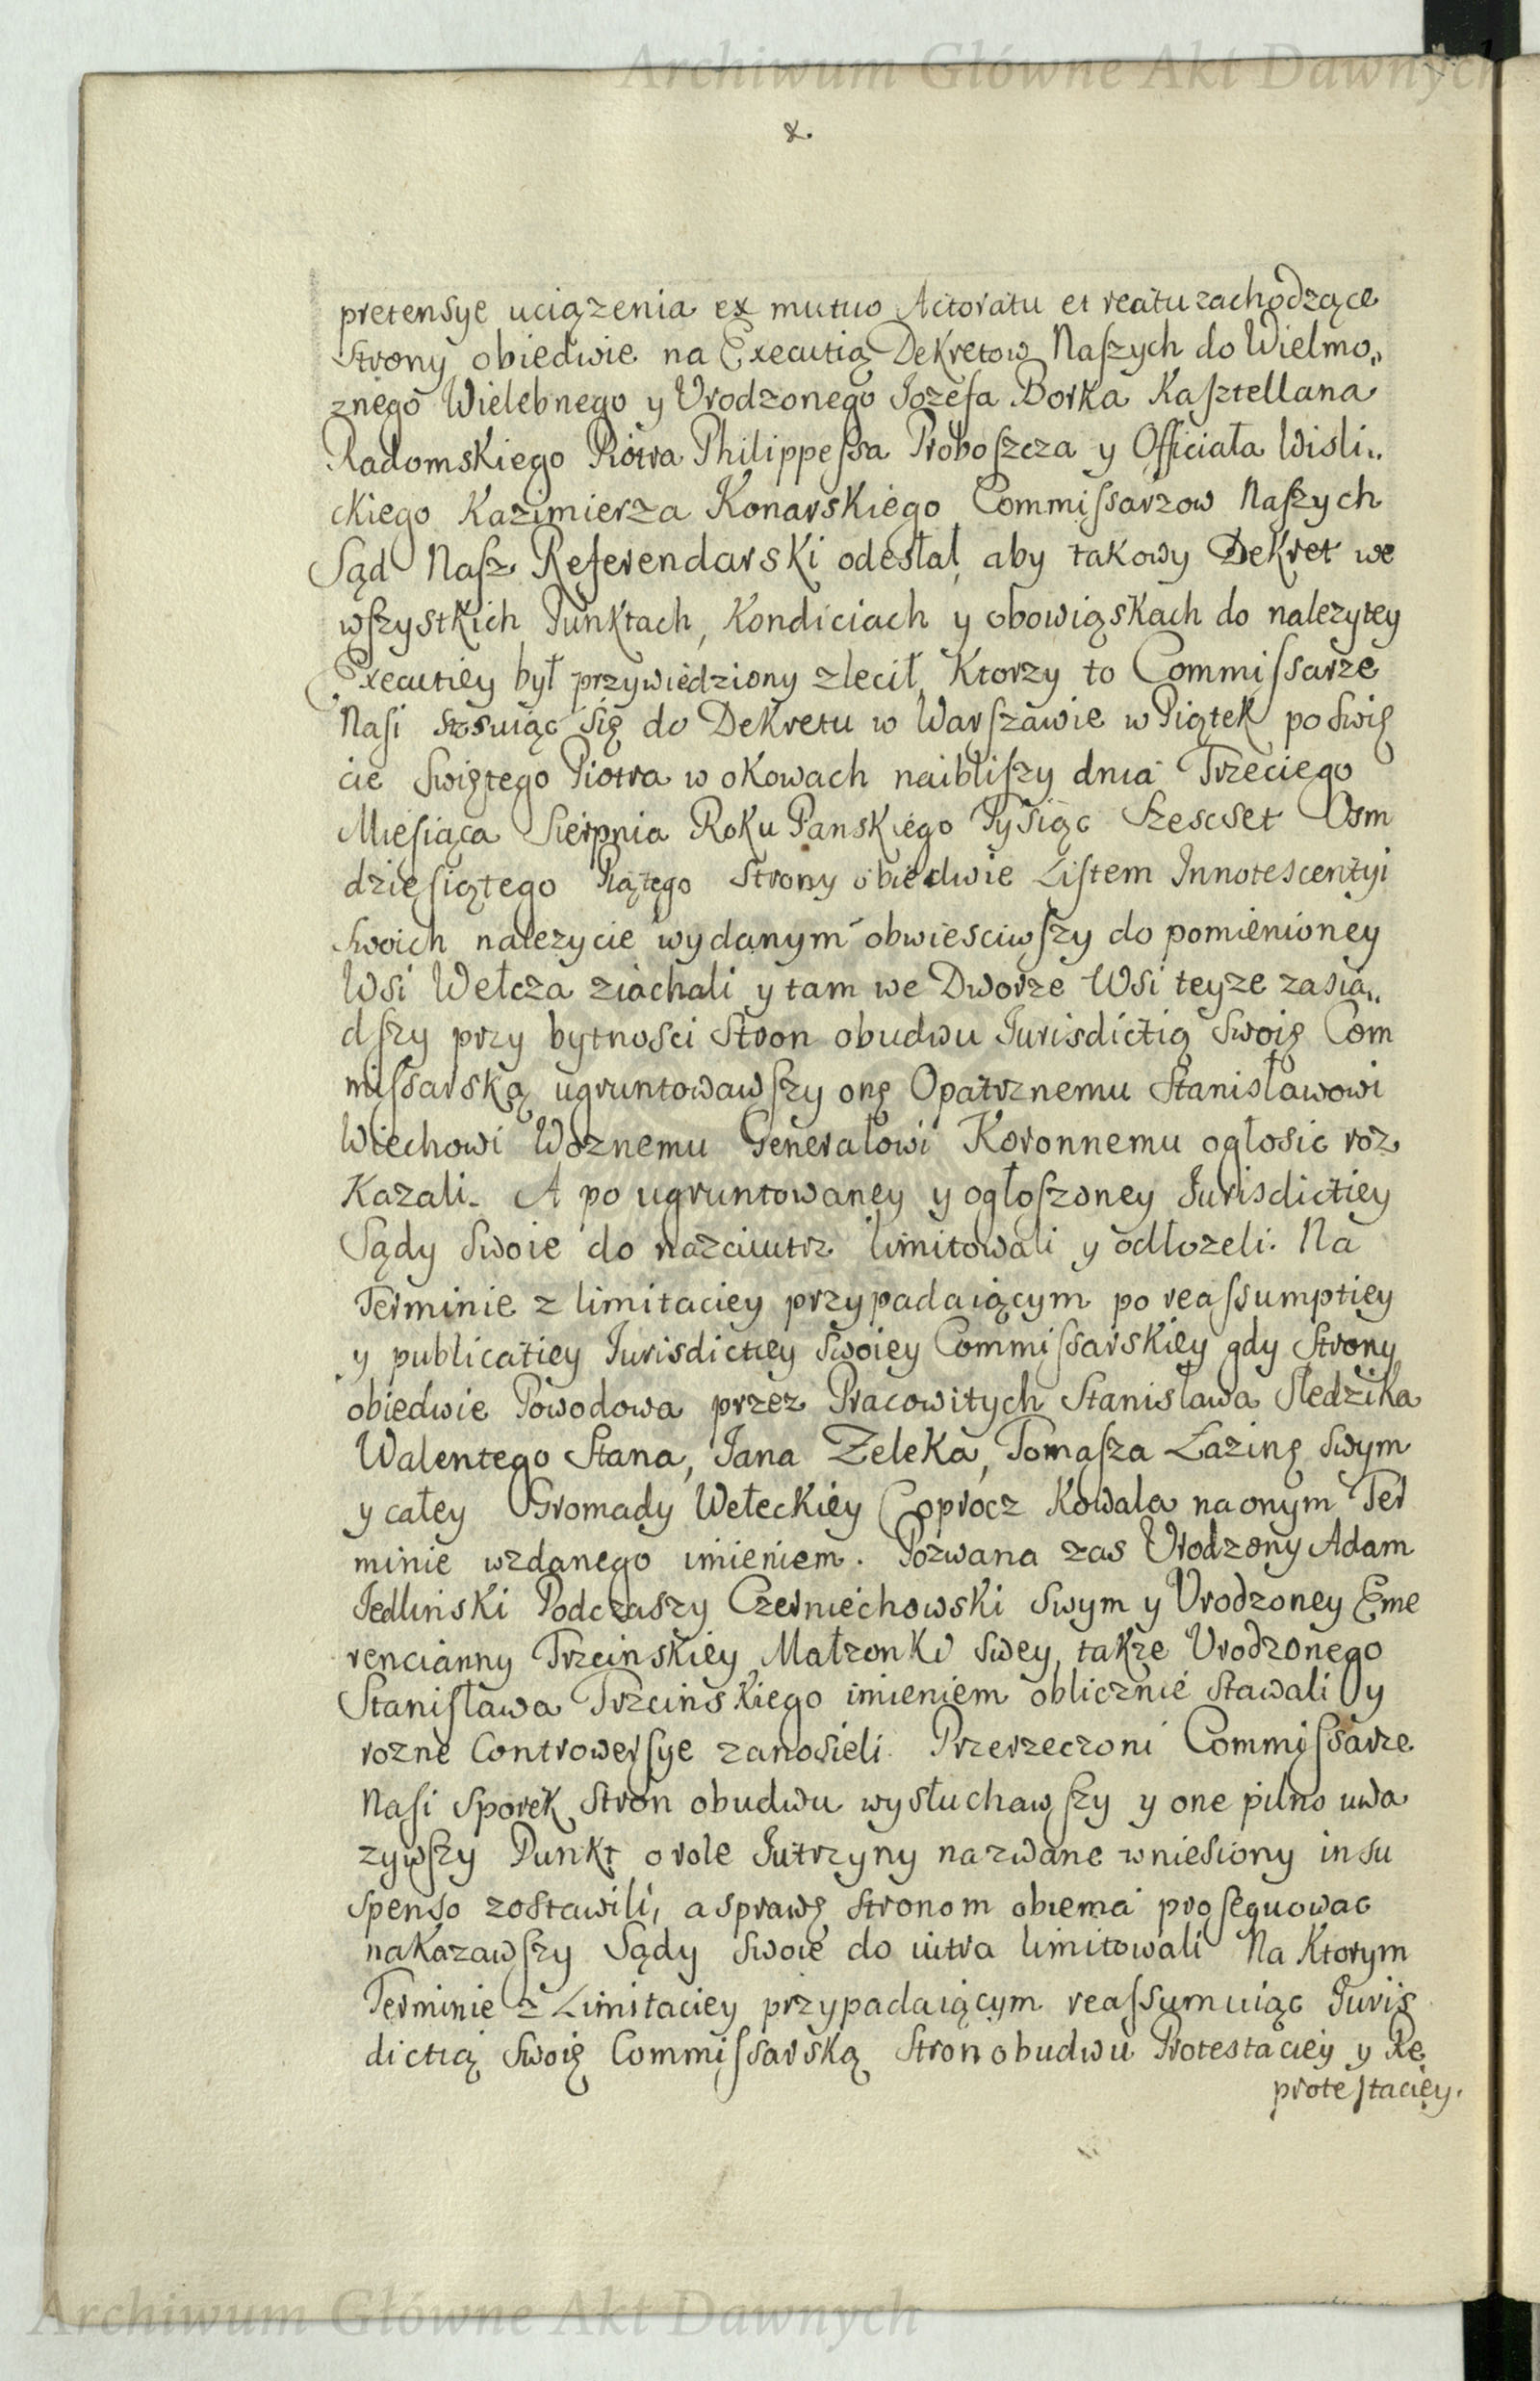 Archiwum Główne Akt Dawnych
x.
pretensye uciązenia ex mutuo Actoratu et reatu zachodzące
Strony obiedwie na Executią Dekretow Naszych do Wielmo„
znego Wielebnego y Urodzonego Iozefa Borka Kasztellana
Radomskiego Piotra Philippessa Proboszcza y Officiała Wisli„
ckiego Kazimierza Konarskiego Commissarzow Naszych
Sąd Nasz Referendarski odesłał, aby takowy Dekret we
wszystkich Punktach, Kondiciach y obowiąskach do nalezytey
Executiey był przywiedziony zlecił, Ktorzy to Commissarze
Nasi stosuiąc się do Dekretu w Warszawie w Piątek po Swię
cie Swiętego Piotra w okowach naiblišzy dnia Trzeciego
Miesiąca Sierpnia Roku Panskiego Tysiąc Szescset Osm
dziesiątego Piątego Strony obiedwie Listem Innotescentyi
Swoich nalezycie wydanym obwiesciwszy do pomienioney
Wsi Wełcza ziachali y tam we Dworze Wsi teyze zasia„
dszy przy bytnosci Stron obudwu Iurisdictią Swoię Com
missarską ugruntowawszy onę Opatrznemu Stanisławowi
Wiechowi Woznemu Generałowi Koronnemu ogłosic roz
Kazali. A po ugruntowaney y ogłoszoney Iurisdictiey
Sądy Swoie do nazaiutrz limitowali y odłozeli. Na
Terminie z limitaciey przypadaiącym po reassumptiey
y publicatiey Iurisdictiey Swoiey Commissarskiey gdy Strony
obiedwie Powodowa przez Pracowitych Stanisława Sledzika
Walentego Stana, Iana Zeleka, Tomasza Łazinę Swym
y całey Gromady Wełeckiey (oprocz Kowala na onym Ter
minie wzdanego imieniem. Pozwana zas Urodzony Adam
Iedlinski Podczaszy Czerniechowski Swym y Urodzoney Eme
rencianny Trzcinskiey Małzonki swey, takze Urodzonego
Stanisława Trzcinskiego imieniem oblicznie Stawali y
rozne Controwersye zanosieli. Przerzeczoni Commissarze
Nasi Sporek Stron obudwu wysłuchawszy y one pilno uwa
zywszy Punkt o role Iutrzyny nazwane wniesiony in su
spenso zostawili, a sprawę stronom obiema prosequowac
nakazawszy Sądy swoie do iutra limitowali Na Ktorym
Terminie z Limitaciey przypadaiącym reassumuiąc Iuris
dictią Swoię Commissarską Stron obudwu Protestaciey y Re
protestaciey.
Archiwum Główne Akt Dawnych